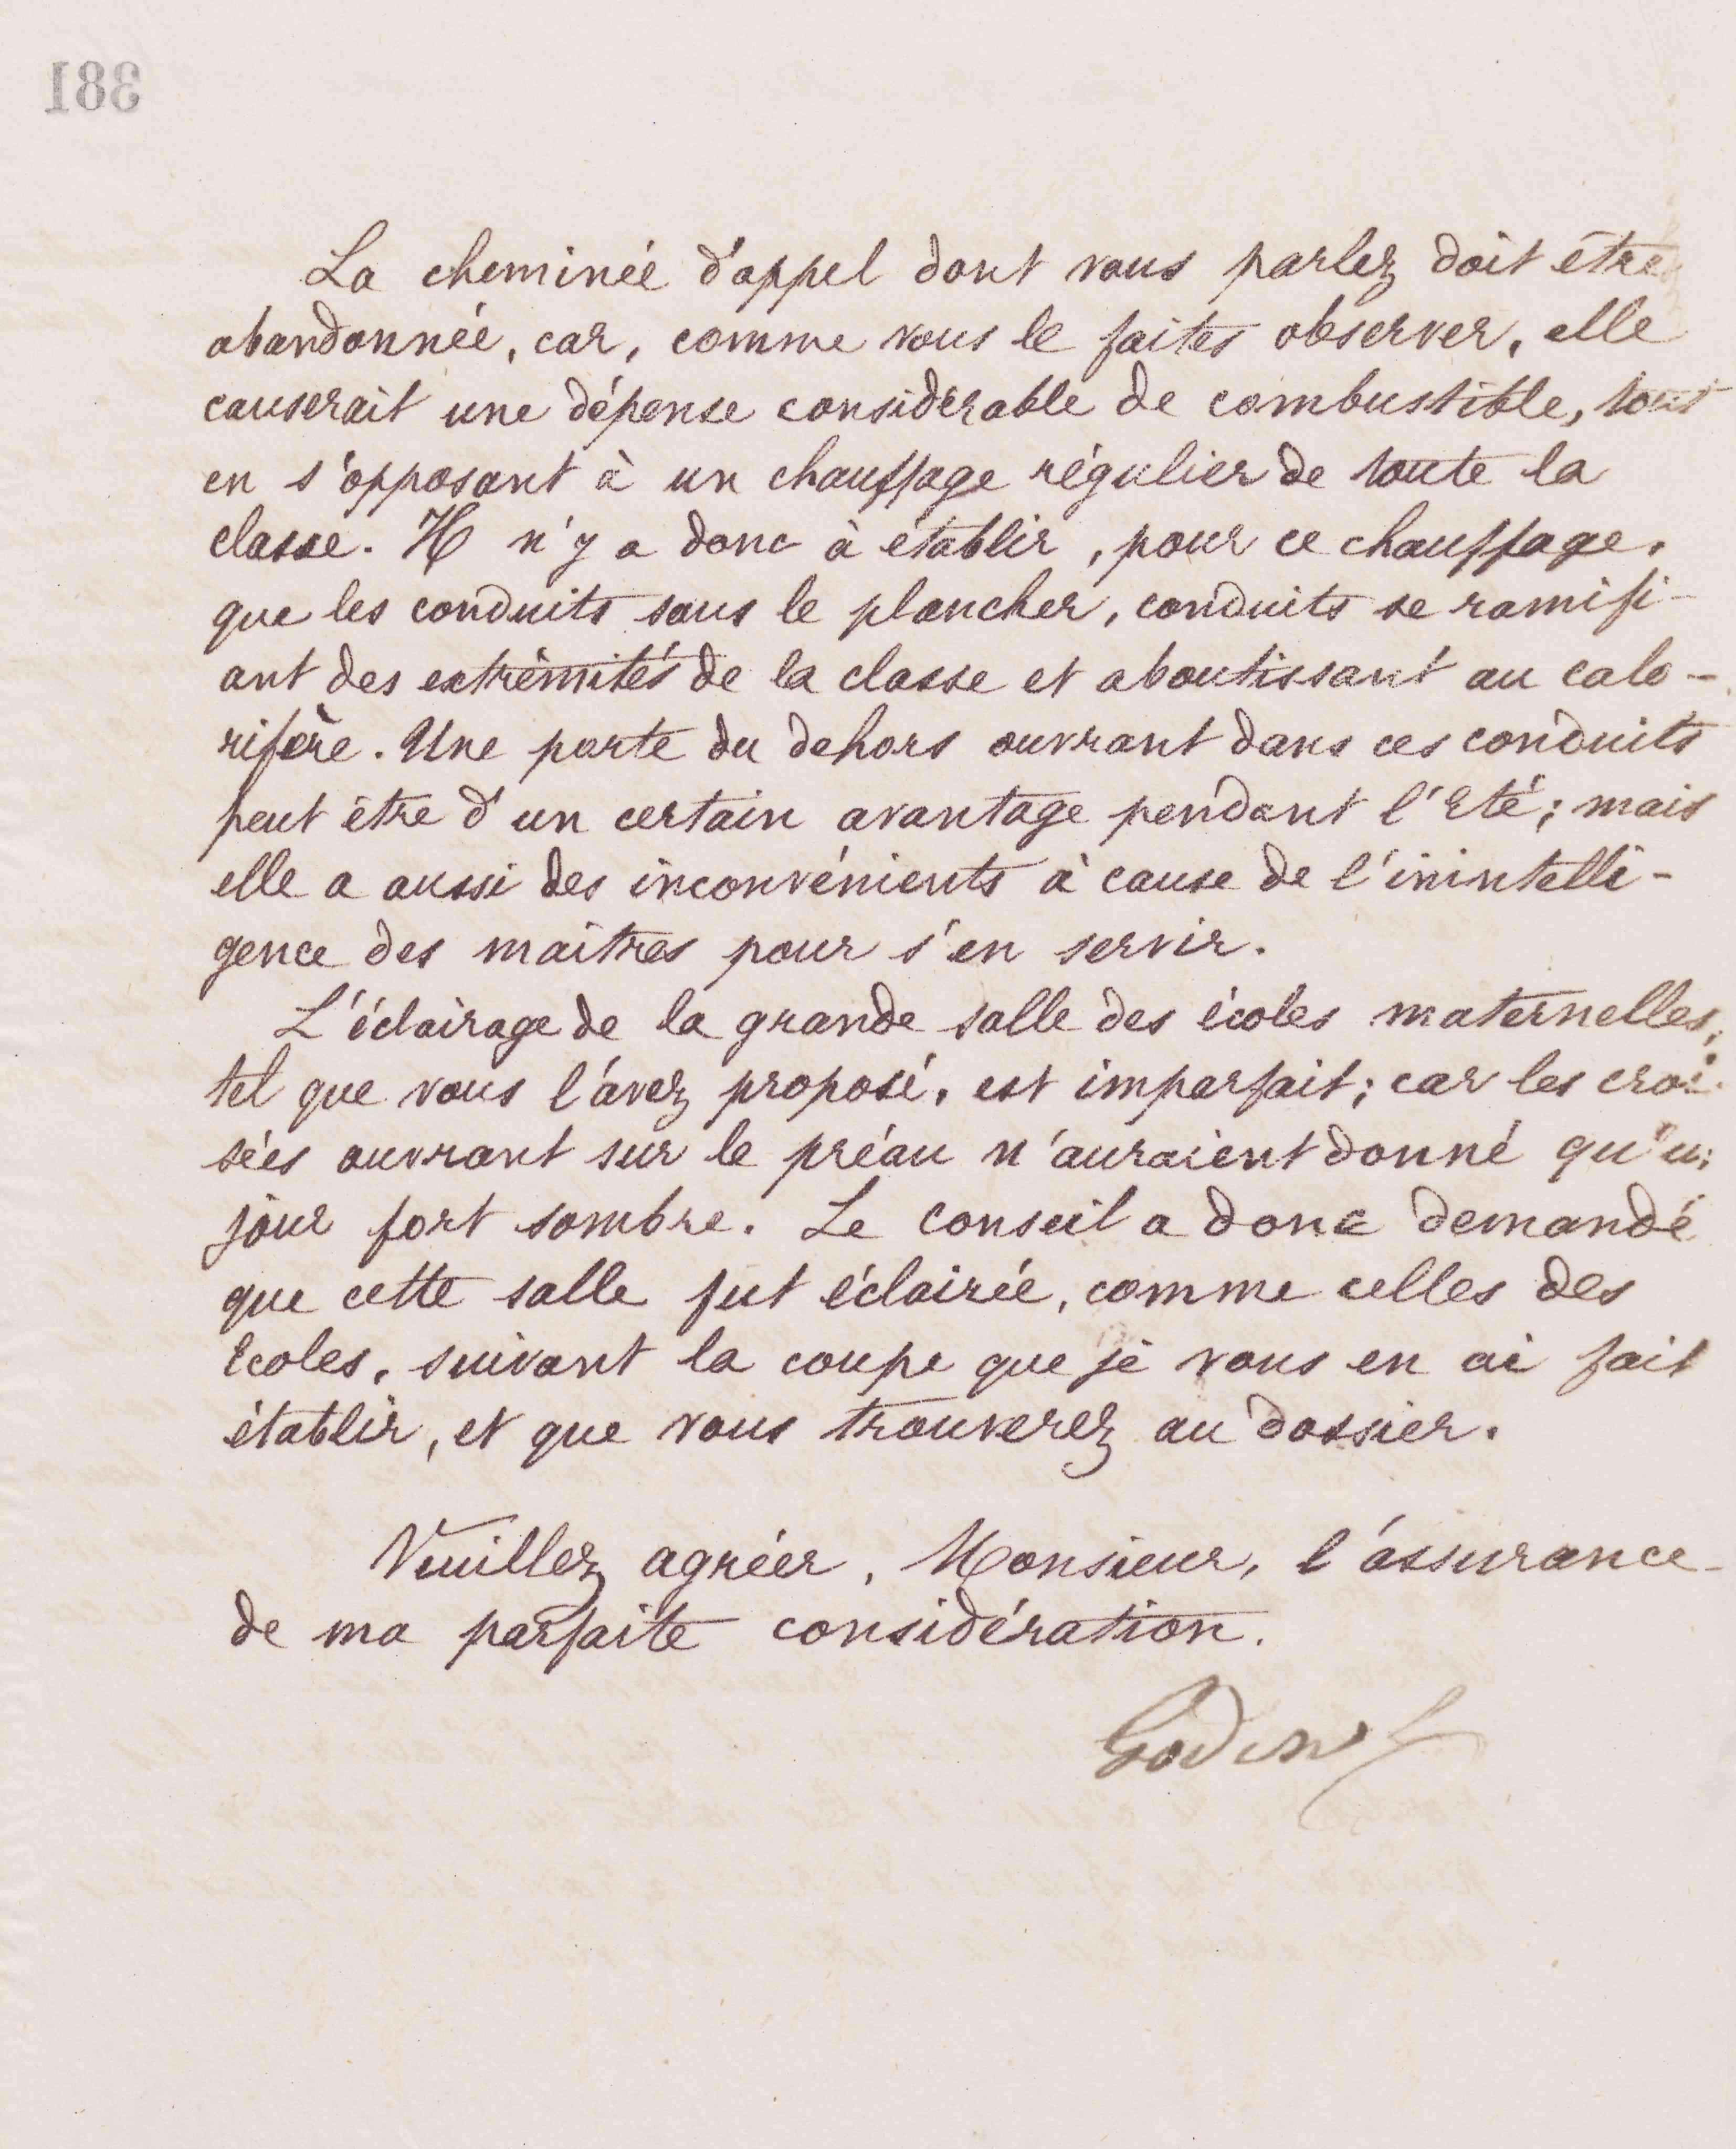 381
La cheminée d'appel dont vous parlez doit être
abandonnée, car, comme vous le faites observer, elle
causerait une dépense considérable de combustible, tout
en s'opposant à un chauffage régulier de toute la
classe. Il n'y a donc à établir, pour ce chauffage,
que les conduits sous le plancher, conduits se ramifi-
ant des extrêmités de la classe et aboutissant au calo-
rifère. Une porte du dehors ouvrant dans ces conduits
peut être d'un certain avantage pendant l'Eté; mais
elle a aussi des inconvénients à cause de l'inintelli-
gence des maîtres pour s'en servir.
L'éclairage de la grande salle des écoles maternelles,
tel que vous l'avez proposé, est imparfait; car les croi-
sées ouvrant sur le préau n'auraient donné qu'un
jour fort sombre. Le Conseil a donc demandé
que cette salle fut éclairée, comme celles des
Ecoles, suivant la coupe que je vous en ai fait
établir, et que vous trouverez au dossier.
Veuillez agréer, Monsieur, l'assurance
de ma parfaite considération.
Godin